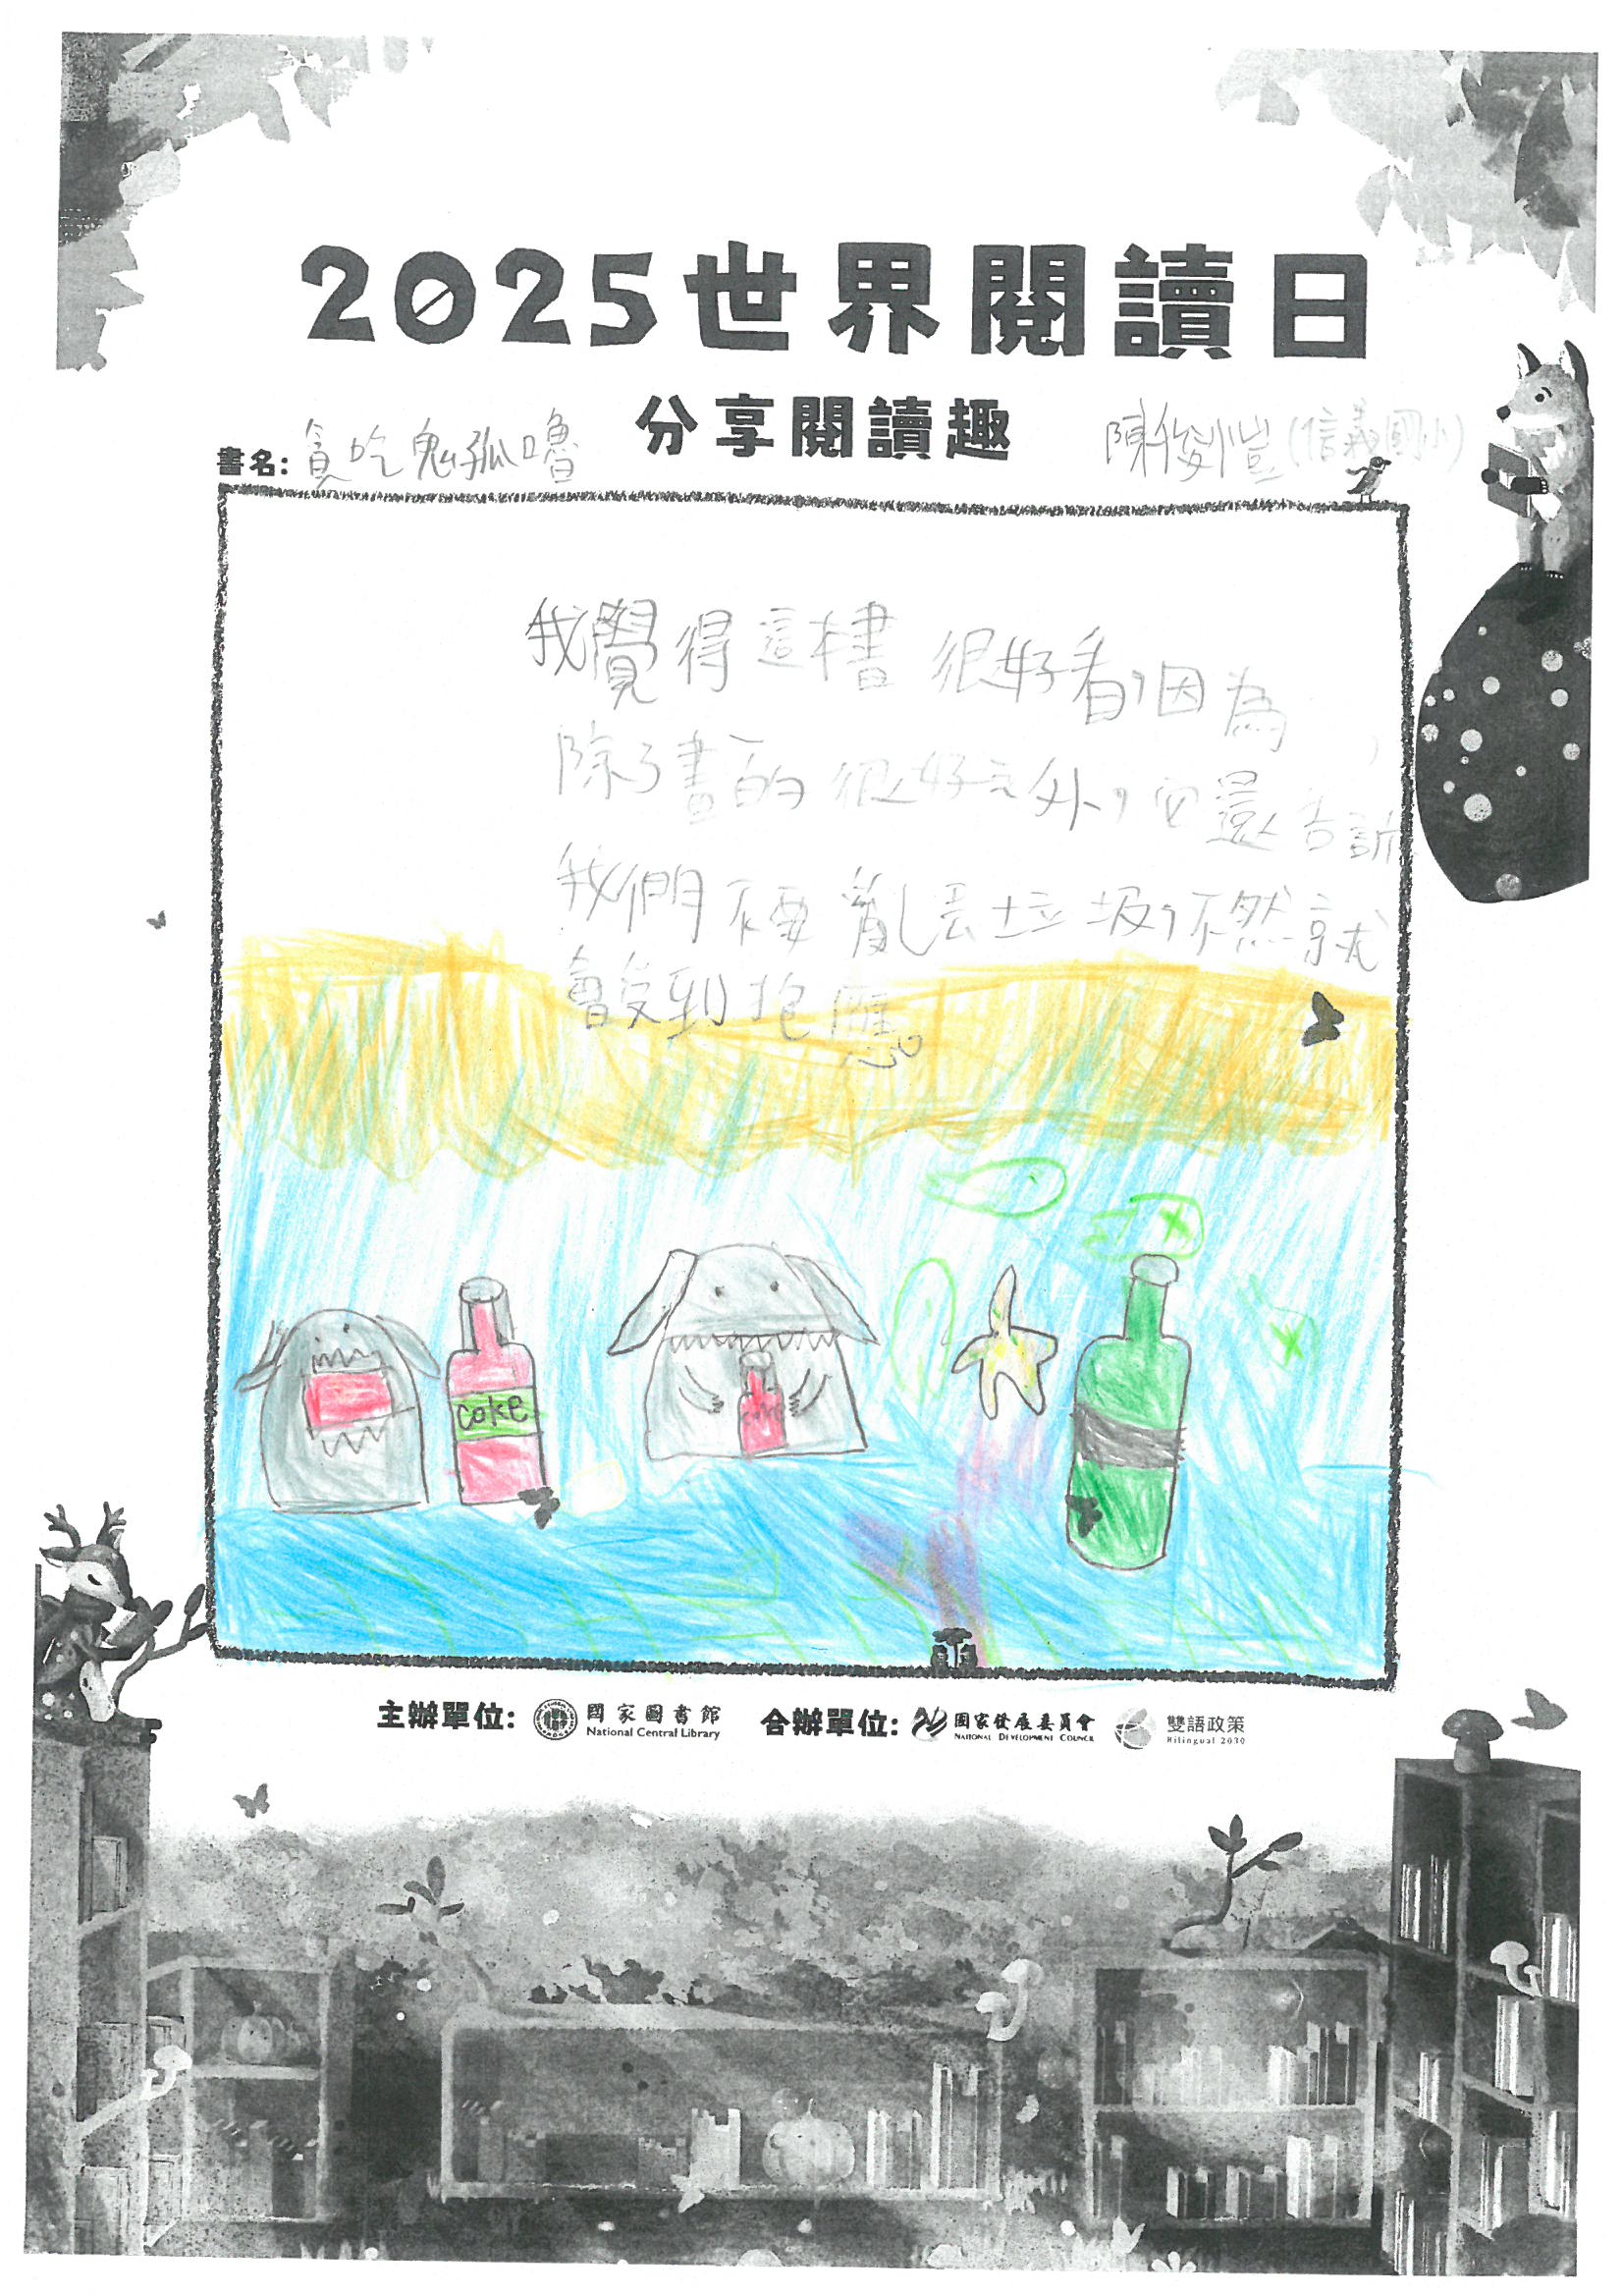 2025世界閱讀日
分享閱讀趣
書名: 貪吃鬼孤嚕
陳俊愷(信義國小)
我覺得這本書很好看,因為
除了畫的很好之外,它還告訴
我們不要亂丟垃圾,不然就
會受到抱應。
coke
coke
主辦單位: 國家圖書館 National Central Library 合辦單位: 國家發展委員會 NATIONAL DEVELOPMENT COUNCIL 雙語政策 Bilingual 2030